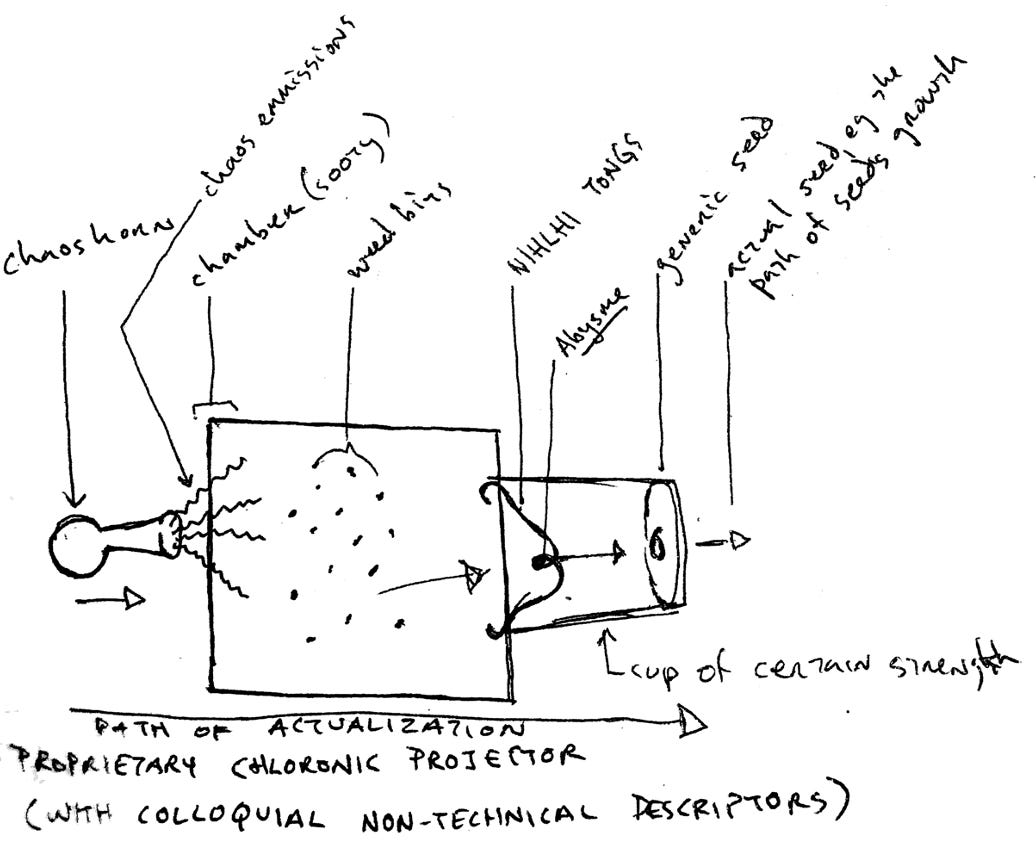 chaos horn
chaos emmissions
chamber (sooty)
weed bits
NIHLHI TONGS
Abysme
generic seed
actual seed eg the
path of seeds growth
cup of certain strength
PATH OF ACTUALIZATION
PROPRIETARY CHLORONIC PROJECTOR
(WITH COLLOQUIAL NON-TECHNICAL DESCRIPTORS)